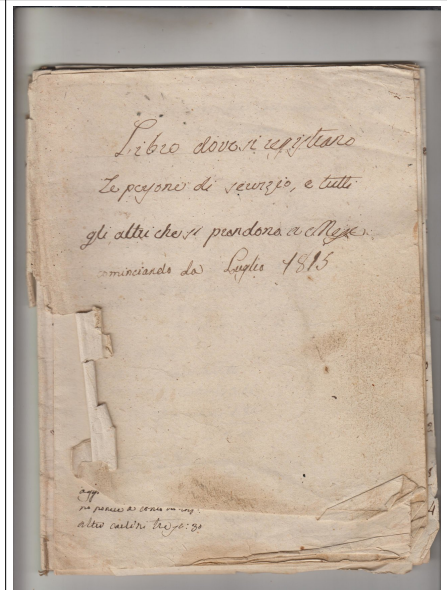 Libro dove si registrano
le persone di servizio, e tutti
gli altri che si prendono a Mese
cominciando da Luglio 1815
oggi
altro carlini tre